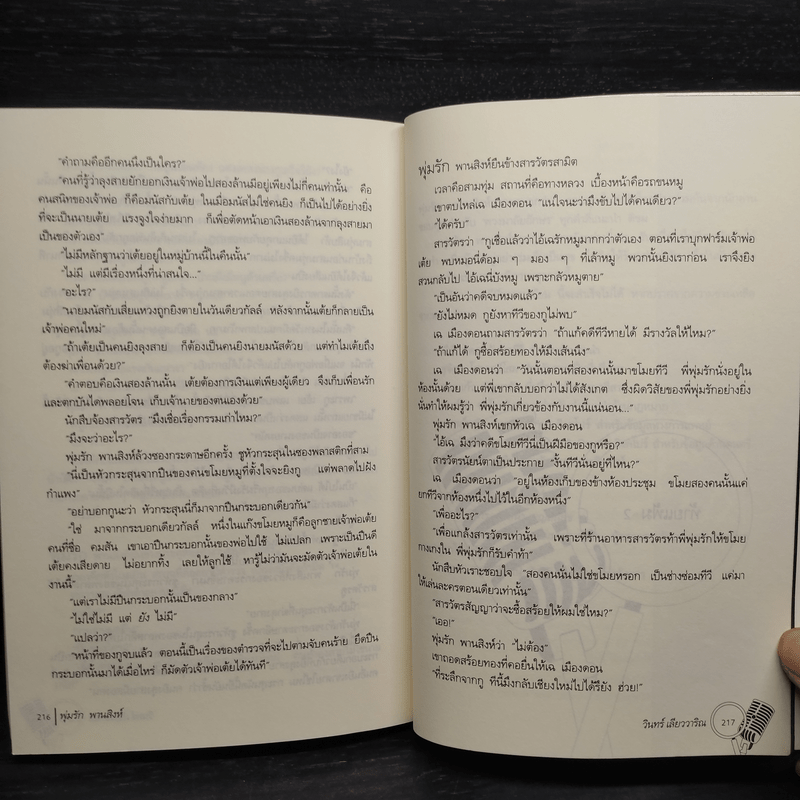 "คำถามคืออีกคนนึงเป็นใคร?"
"คนที่รู้ว่าลุงสายยักยอกเงินเจ้าพ่อไปสองล้านมีอยู่เพียงไม่กี่คนเท่านั้น คือ
คนสนิทของเจ้าพ่อ ก็คือมนัสกับเต้ย ในเมื่อมนัสไม่ใช่คนยิง ก็เป็นไปได้อย่างยิ่ง
ที่จะเป็นนายเต้ย แรงจูงใจง่ายมาก ก็เพื่อตัดหน้าเอาเงินสองล้านจากลุงสายมา
เป็นของตัวเอง"
"ไม่มีหลักฐานว่าเต้ยอยู่ในหมู่บ้านนี้ในคืนนั้น"
"ไม่มี แต่มีเรื่องหนึ่งที่น่าสนใจ..."
"อะไร?"
"นายมนัสกับเสี่ยแหวงถูกยิงตายในวันเดียวกัลล์ หลังจากนั้นเต้ยก็กลายเป็น
เจ้าพ่อคนใหม่"
"ถ้าเต้ยเป็นคนยิงลุงสาย ก็ต้องเป็นคนยิงนายมนัสด้วย แต่ทำไมเต้ยถึง
ต้องฆ่าเพื่อนด้วย?"
"คำตอบคือเงินสองล้านนั้น เต้ยต้องการเงินแต่เพียงผู้เดียว จึงเก็บเพื่อนรัก
และตกบันไดพลอยโจน เก็บเจ้านายของตนเองด้วย"
นักสืบจ้องสารวัตร "มึงเชื่อเรื่องกรรมเก่าไหม?"
"มึงจะว่าอะไร?"
พุ่มรัก พานสิงห์ล้วงซองกระดาษอีกครั้ง ชูหัวกระสุนในซองพลาสติกที่สาม
"นี่เป็นหัวกระสุนจากปืนของคนขโมยหมูที่ตั้งใจจะยิงกู แต่พลาดไปฝัง
กำแพง"
"อย่าบอกกูนะว่า หัวกระสุนนี่ก็มาจากปืนกระบอกเดียวกัน"
"ใช่ มาจากกระบอกเดียวกัลล์ หนึ่งในแก๊งขโมยหมูก็คือลูกชายเจ้าพ่อเต้ย
คนที่ชื่อ คมสัน เขาเอาปืนกระบอกนั้นของพ่อไปใช้ ไม่แปลก เพราะเป็นปืนดี
เต้ยคงเสียดาย ไม่อยากทิ้ง เลยให้ลูกใช้ หารู้ไม่ว่ามันจะมัดตัวเจ้าพ่อเต้ยใน
งานนี้"
"แต่เราไม่มีปืนกระบอกนั้นเป็นของกลาง"
"ไม่ใช่ไม่มี แต่ ยัง ไม่มี"
"แปลว่า?"
"หน้าที่ของกูจบแล้ว ตอนนี้เป็นเรื่องของตำรวจที่จะไปตามจับคนร้าย ยึดปืน
กระบอกนั้นมาได้เมื่อไหร่ ก็มัดตัวเจ้าพ่อเต้ยได้ทันที"
216 | พุ่มรัก พานสิงห์
พุ่มรัก พานสิงห์ยืนข้างสารวัตรสามิต
เวลาคือสามทุ่ม สถานที่คือทางหลวง เบื้องหน้าคือรถขนหมู
เขาตบไหล่เฉ เมืองดอน "แน่ใจนะว่ามึงขับไปได้คนเดียว?"
"ได้ครับ"
สารวัตรว่า "กูเชื่อแล้วว่าไอ้เฉรักหมูมากกว่าตัวเอง ตอนที่เราบุกฟาร์มเจ้าพ่อ
เต้ย พบหมอนี่ด้อม ๆ มอง ๆ ที่เล้าหมู พวกนั้นยิงเราก่อน เราจึงยิง
สวนกลับไป ไอ้เฉนี่บังหมู เพราะกลัวหมูตาย"
"เป็นอันว่าคดีจบหมดแล้ว"
"ยังไม่หมด กูยังหาทีวีของกูไม่พบ"
เฉ เมืองดอนถามสารวัตรว่า "ถ้าแก้คดีทีวีหายได้ มีรางวัลให้ไหม?"
"ถ้าแก้ได้ กูซื้อสร้อยทองให้มึงเส้นนึง"
เฉ เมืองดอนว่า "วันนั้นตอนที่สองคนนั้นมาขโมยทีวี พี่พุ่มรักนั่งอยู่ใน
ห้องนั้นด้วย แต่พี่เขากลับบอกว่าไม่ได้สังเกต ซึ่งผิดวิสัยของพี่พุ่มรักอย่างยิ่ง
นั่นทำให้ผมรู้ว่า พี่พุ่มรักเกี่ยวข้องกับงานนี้แน่นอน..."
พุ่มรัก พานสิงห์เขกหัวเฉ เมืองดอน
"ไอ้เฉ มึงว่าคดีขโมยทีวีนี่เป็นฝีมือของกูหรือ?"
สารวัตรนัยน์ตาเป็นประกาย "งั้นทีวีนั่นอยู่ที่ไหน?"
เฉ เมืองดอนว่า "อยู่ในห้องเก็บของข้างห้องประชุม ขโมยสองคนนั้นแค่
ยกทีวีจากห้องหนึ่งไปไว้ในอีกห้องหนึ่ง"
"เพื่ออะไร?"
"เพื่อแกล้งสารวัตรเท่านั้น เพราะที่ร้านอาหารสารวัตรท้าพี่พุ่มรักให้ขโมย
กางเกงใน พี่พุ่มรักก็รับคำท้า"
นักสืบหัวเราะชอบใจ "สองคนนั่นไม่ใช่ขโมยหรอก เป็นช่างซ่อมทีวี แค่มา
ให้เล่นละครตอนเดียวเท่านั้น"
"สารวัตรสัญญาว่าจะซื้อสร้อยให้ผมใช่ไหม?"
"เออ!"
พุ่มรัก พานสิงห์ว่า "ไม่ต้อง"
เขาถอดสร้อยทองที่คอยื่นให้เฉ เมืองดอน
"ที่ระลึกจากกู ทีนี้มึงกลับเชียงใหม่ไปได้รึยัง ฮ่วย!"
วินทร์ เลียววาริณ 217